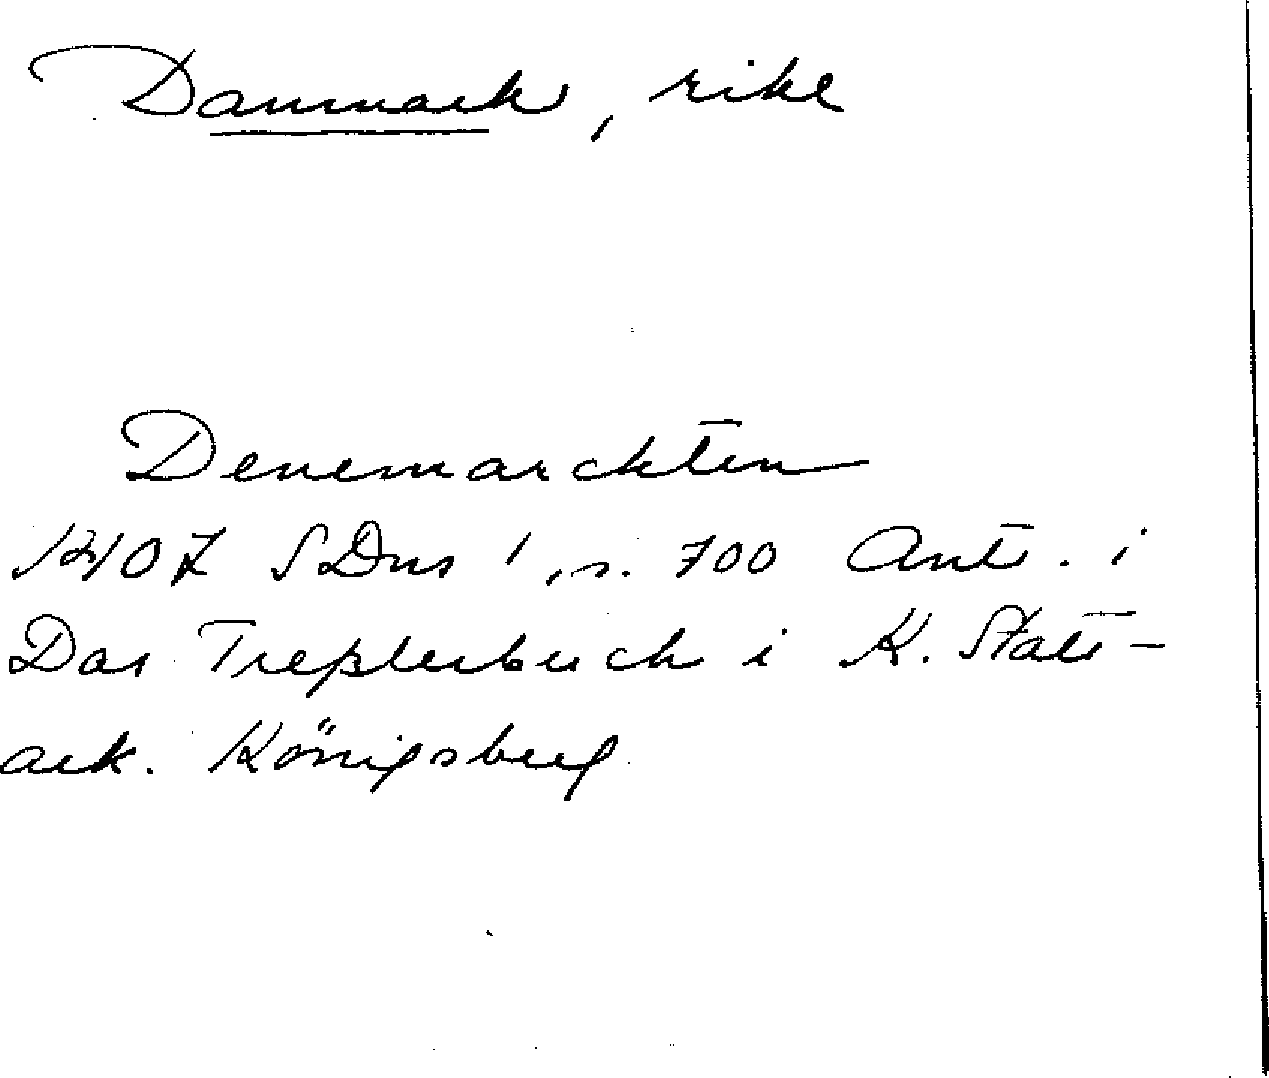 Danmark, rike
Denemarckten
1407 SDns 1, s. 700 Ant. i
Das Tresslerbuch i K. Stats-
ark. Königsberg